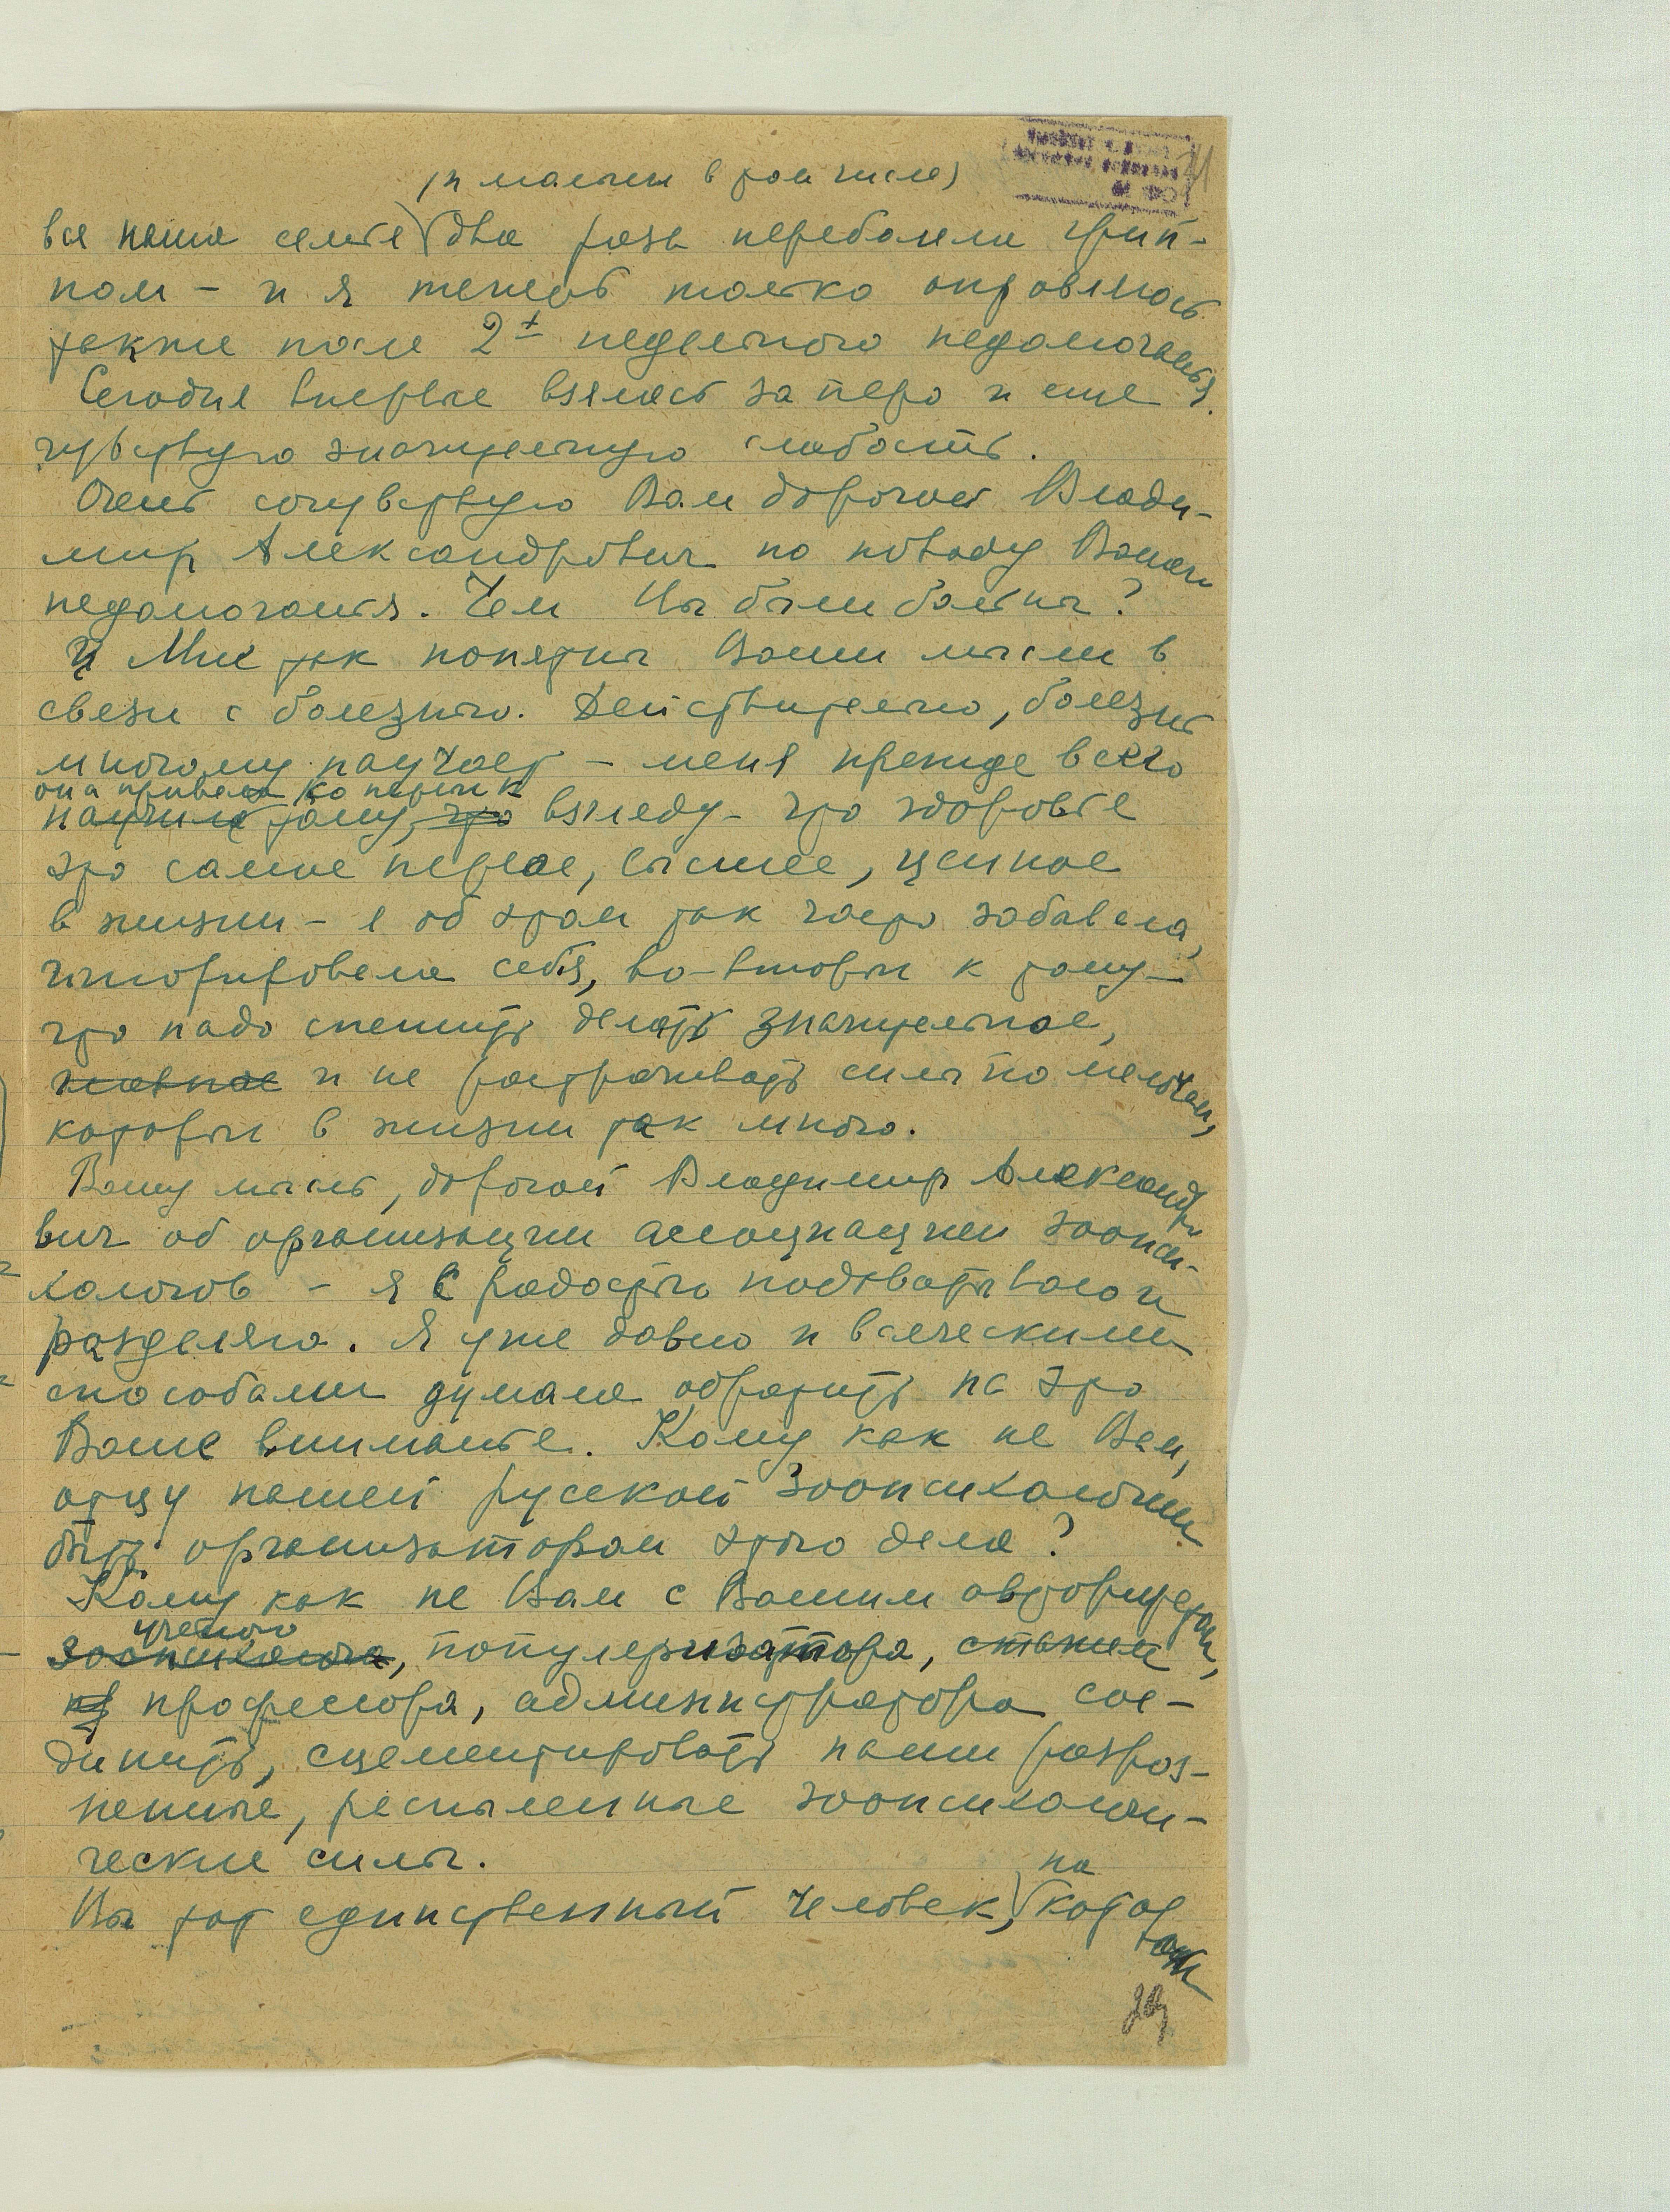 (и малыш в том числе)
вся наша семья два раза переболели грип-
пом – и я теперь только оправляюсь
также после 2х недельного недомогания.
Сегодня впервые взялась за перо и еще
чувствую значительную слабость.
Очень сочувствую Вам дорогой Влади-
мир Александрович по поводу Вашего
недомогания. Чем Вы были больны?
Мне так понятны Ваши мысли в
связи с болезнью. Действительно, болезнь
многому научает – меня прежде всего
она привела во первых к
научила тому, что взгляду – что здоровье
это самое первое, высшее, ценное
в жизни – я об этом так часто забывала,
игнорировала себя, во-вторых к тому –
что надо спешить делать значительное,
главное и не растрачивать силы по мелочам,
которых в жизни так много.
Вашу мысль, дорогой Владимир Александро
вич об организации ассоциации зоопси-
хологов – я с радостью подхватываю и
разделяю. Я уже давно и всяческими
способами думала обратить на это
Ваше внимание. Кому как не Вам,
отцу нашей русской зоопсихологии
быть организатором этого дела?
Кому как не Вам с Вашим авторитетом,
ученого
зоопсихолога, популяризатора,
профессора, администратора сое-
динить, сцементировать наши разроз-
ненные, распыленные зоопсихологи-
ческие силы.
на
Вы тот единственный человек, котор